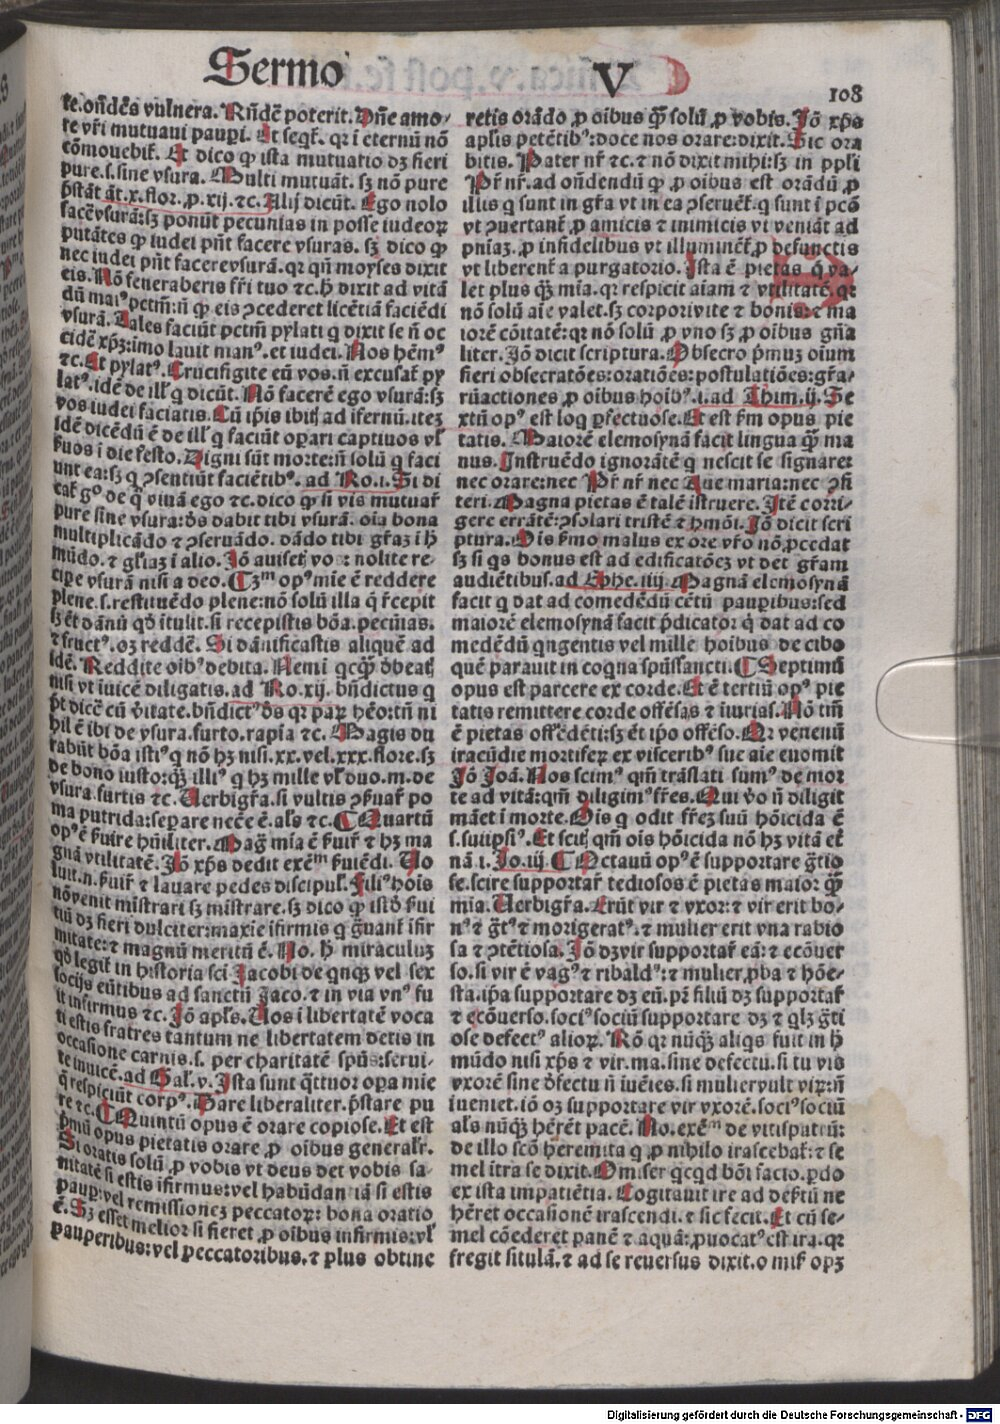 Sermo V
108
te.ondẽs vulnera. Rñdẽt poterit. Dñe amo-
re vr̃i mutuaui paupi. Et seqr̃. qr i eternũ nõ
cõmouebit̃. Et dico ꝙ ista mutuatio dꝫ fieri
pure.s.sine vsura. Multi mutuãt. sꝫ nõ pure
p̃stãt ãt.x.flor.ꝓ.xij.⁊c. Alij dicũt. Ego nolo
facẽ vsurã: sꝫ ponũt pecunias in posse iudeoꝝ
putãtes ꝙ iudei pñt facere vsuras. sꝫ dico ꝙ
nec iudei pñt facere vsurã. qr qñ moyses dixit
eis. Nõ feneraberis fr̃i tuo ⁊c. h̃ dixit ad vitã
dũ maiꝰ pctm̃: ñ ꝙ eis ꝯcederet licẽtiã faciẽdi
vsurã. Tales faciũt pctm̃ pylati q̃ dixit se ñ oc
cidẽ xp̃ꝫ: imo lauit manꝰ. et iudei. Nos hẽmꝰ
⁊c. Et pylatꝰ. Crucifigite eũ vos. ñ excusat̃ py
latꝰ. idẽ de ill̃ q dicũt. Nõ facerẽ ego vsurã: sꝫ
vos iudei faciatis. Cũ ip̃is ibit̃ ad ifernũ. iteꝫ
Idẽ dicẽdũ ẽ de ill̃ q faciũt oꝑari captiuos vl̃
ẜuos i die festo. Digni sũt morte: ñ solũ q faci
unt ea: sꝫ q ꝯsentiũt faciẽtibꝰ. ad Ro.i. Si di
cat̃ gº de q̃ viuã ego ⁊c. dico ꝙ si vis mutuar̃
pure sine vsura: dñs dabit tibi vsurã. oĩa bona
multiplicãdo ⁊ ꝯseruãdo. dãdo tibi gr̃az i h̃
mũdo. ⁊ gl̃iaꝫ i alio. Jõ auiset̃ vos: nolite re-
cipe vsurã nisi a deo. ¶ 3m opꝰ mie ẽ reddere
plene.s.restituẽdo plene: nõ solũ illa q̃ r̃cepit
sꝫ et dãnũ qd̃ itulit. si recepistis bõa. pecũias.
⁊ fructꝰ. oꝫ reddẽ. Si dãnificastis aliquẽ ad
idẽ. Reddite oibꝰ debita. Nemi qcꝙ̃ debeat̃
nisi vt iuicẽ diligatis. ad Ro.xij. bñdictus q
p̃t dicẽ cũ ṽitate. bñdictꝰ dñs qr paꝝ hẽo: tñ ni
hil ẽ ibi de vsura. furto. rapĩa ⁊c. Magis du
rabũt bõa istiꝰ q nõ hꝫ nisi.xx.vel.xxx.flore. sꝫ
de bono iusto: qꝫ̃ illiꝰ q hꝫ mille vl̃ duo.m. de
vsura. furtis ⁊c. Uerbigr̃a. si vultis ꝯẜuar̃ po
ma putrida: separe necẽ ẽ. al̃s ⁊c. ¶ Quartũ
opꝰ ẽ ẜuire hũiliter. Mag̃ mia ẽ ẜuir̃ ⁊ hꝫ ma
gnã vtilitatẽ. Jõ xp̃s dedit exẽm ẜuiẽdi. Uo
luit.n. ẜuir̃ ⁊ lauare pedes discipul̃. Filiꝰ hõis
nõ venit mistrari sꝫ mistrare. sꝫ dico ꝙ istd̃ ẜui
tiũ dꝫ fieri dulciter: maxie ifirmis q g̃uant̃ ifir
mitate: ⁊ magnũ meritũ ẽ. No. h̃ miraculuꝫ
qd̃ legit̃ in historia sci Jacobi de qnqꝫ vel sex
socijs eũtibus ad sanctũ Jaco. ⁊ in via vnꝰ fu
it infirmus ⁊c. Jõ apl̃s. Uos i libertatẽ voca
ti estis fratres tantum ne libertatem detis in
occasione carnis.s. per charitatẽ spũs: serui-
te inuicẽ. ad Gal̃.v. Ista sunt q̃ttuor oꝑa mie
q̃ respiciũt corpꝰ. Dare liberaliter. p̃stare pu
re ⁊c. ¶ Quintũ opus ẽ orare copiose. Et est
p̃mũ opus pietatis orare ꝓ oibus generalr̃.
Si oratis solũ ꝓ vobis vt deus det vobis sa-
nitatẽ si estis ifirmus: vel habũdantiã si estis
pauꝑ: vel remissionez peccatoꝝ: bona oratio
ẽ. Sꝫ esset melior si fieret ꝓ oibus infirmis: vl̃
pauperibus: vel peccatoribus. ⁊ plus obtine
retis orãdo ꝓ oibus qꝫ̃ solũ ꝓ vobis. Jõ xp̃s
apl̃is petẽtibꝰ: doce nos orare: dixit. Sic ora
bitis. Pater nr̃ ⁊c. ⁊ nõ dixit mihi: sꝫ in ppli
Pr̃ nr̃. ad oñdendũ ꝙ ꝓ oibus est orãdũ ꝓ
illis q sunt in gr̃a vt in ea ꝯseruẽt̃. q sunt i pcõ
vt ꝯuertant̃ ꝓ amicis ⁊ inimicis vt veniãt ad
pniaꝫ. ꝓ infidelibus vt illuminẽt̃ ꝓ defunctis
vt liberent̃ a purgatorio. Ista ẽ pietas q̃ va-
let plus qꝫ̃ mia. qr respicit aiam ⁊ vtilitatẽ. qr
nõ solũ aie valet. sꝫ corpori vite ⁊ bonis: ⁊ ma
iorẽ cõitatẽ: qr nõ solũ ꝓ vno sꝫ ꝓ oibus gña
liter. Jõ dicit scriptura. Obsecro p̃muꝫ oium
fieri obsecratões: oratiões: postulatiões: gr̃a-
rũ actiones ꝓ oibus hoibꝰ. i. ad Thim.ij. Se
xtũ opꝰ est loq ꝑfectuose. Et est ẜm opus pie
tatis. Maiorẽ elemosynã facit lingua qꝫ̃ ma
nus. Instruẽdo ignorãtẽ q nescit se signare:
nec orare: nec Pr̃ nr̃ nec Aue maria: nec ꝯfi
teri. Magna pietas ẽ talẽ istruere. Jtẽ corri-
gere errãtẽ: ꝯsolari tristẽ ⁊ hmõi. Jõ dicit scri
ptura. Ois ẜmo malus ex ore vr̃o nõ ꝓcedat
sꝫ si qs bonus est ad edificatõeꝫ vt det gr̃am
audiẽtibus. ad Ephe.iiij. Magnã elemosynã
facit q dat ad comedẽdũ cẽtũ pauꝑibus: sed
maiorẽ elemosynã facit p̃dicator q̃ dat ad co
medẽdũ qngentis vel mille hoibus de cibo
quẽ parauit in coqna spũssancti. ¶ Septimũ
opus est parcere ex corde. Et ẽ tertiũ opꝰ pie
tatis remittere corde offẽsas ⁊ iiurias. Nõ tm̃
ẽ pietas offẽdẽti: sꝫ et ipo offẽso. Qr venenũ
iracũdie mortiferꝫ ex visceribꝰ sue aie euomit
Jõ Joã. Nos scimꝰ qm̃ trãslati sumꝰ de mor
te ad vitã: qm̃ diligimꝰ fr̃es. Qui ṽo ñ diligit
mãet i morte. Ois q odit frẽꝫ suũ hõicida ẽ
s. suiipsiꝰ. Et scit̃ qm̃ ois hõicida nõ hꝫ vitã et̃
nã i. Jo.iij. ¶ Octauũ opꝰ ẽ supportare g̃tio
se. scire supportar̃ tediosos ẽ pietas maior qꝫ̃
mia. Uerbigr̃a. Erũt vir ⁊ vxor: ⁊ vir erit bo-
nꝰ ⁊ g̃tꝰ ⁊ morigeratꝰ. ⁊ mulier erit vna rabio
sa ⁊ ꝯtẽtiosa. Jõ dꝫ vir supportar̃ eã: ⁊ ecõuer
so. si vir ẽ vagꝰ ⁊ ribaldꝰ: ⁊ mulier ꝓba ⁊ hõe-
sta. ip̃a supportare dꝫ eũ. pr̃ filiũ dꝫ supportar̃
⁊ ecõuerso. sociꝰ sociũ supportare dꝫ ⁊ qlꝫ g̃ti
ose defectꝰ alioꝝ. Rõ qr nũqꝫ̃ aliqs fuit in h̃
mũdo nisi xp̃s ⁊ vir.ma. sine defectu. si tu vis
vxorẽ sine d̃fectu ñ iuẽies. si mulier vult viꝝ: ñ
iueniet. iõ oꝫ supportare vir vxorẽ. sociꝰ sociũ
al̃s nũqꝫ̃ hẽrẽt pacẽ. No. exẽm de vitispatrũ:
de illo scõ heremita q ꝓ nihilo irascebat̃: ⁊ se
mel itra se dixit. O miser qcqd bõi facio. ꝑdo
ex ista impatiẽtia. Cogitauit ire ad dẽsr̃tũ ne
hẽret occasionẽ irascendi. ⁊ sic fecit. Et cũ se-
mel cõederet panẽ ⁊ aquã: ꝓuocatꝰ est ira. qr
fregit situlã. ⁊ ad se reuersus dixit. o mis̃ opꝫ
Digitalisierung gefördert durch die Deutsche Forschungsgemeinschaft - DFG